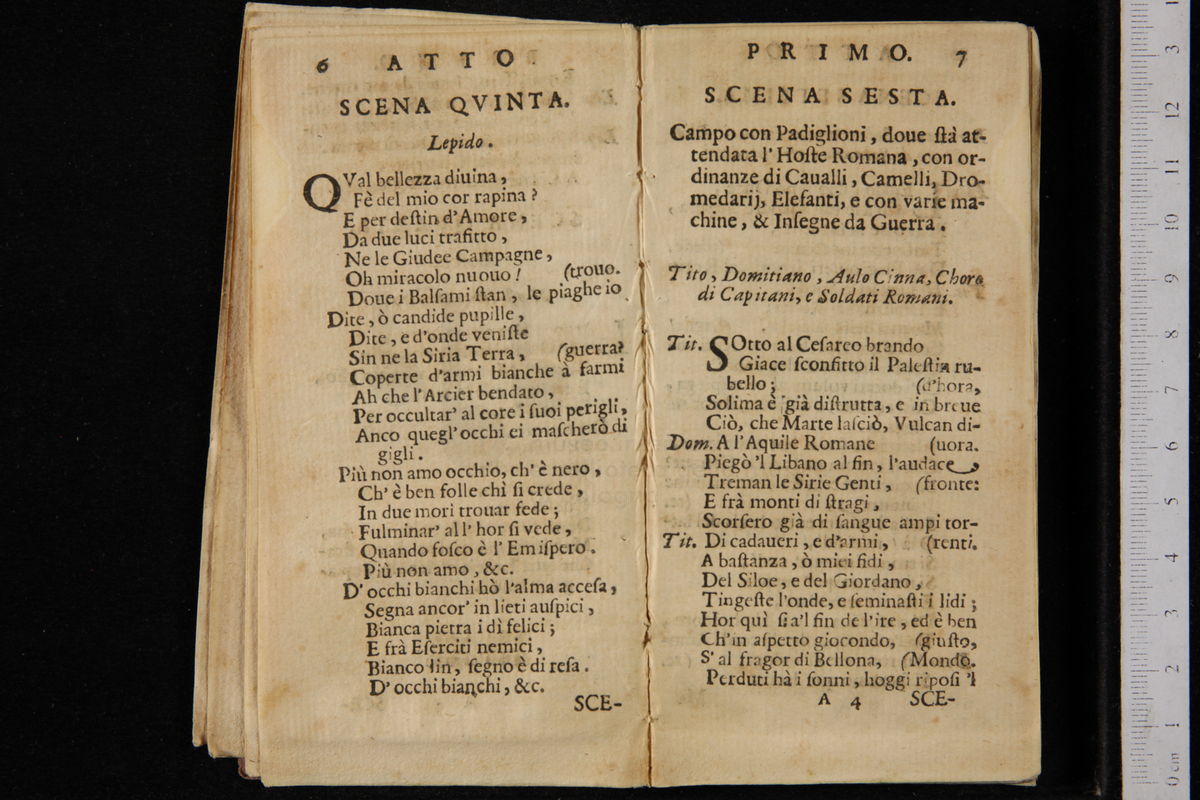 6 ATTO
SCENA QVINTA.
Lepido.
QVal bellezza diuina,
Fè del mio cor rapina?
E per deſtin d'Amore,
Da due luci trafitto,
Ne le Giudee Campagne,
Oh miracolo nuouo! (trouo.
Doue i Balſami ſtan, le piaghe io
Dite, ò candide pupille,
Dite, e d'onde veniſte
Sin ne la Siria Terra, (guerra?
Coperte d'armi bianche à farmi
Ah che l'Arcier bendato,
Per occultar' al core i ſuoi perigli,
Anco quegl'occhi ei maſcherò di
gigli.
Più non amo occhio, ch'è nero,
Ch'è ben folle chi ſi crede,
In due mori trouar fede;
Fulminar' all'hor ſi vede,
Quando foſco è l'Emiſpero.
Più non amo, &c.
D'occhi bianchi hò l'alma acceſa,
Segna ancor' in lieti auſpici,
Bianca pietra i dì felici;
E frà Eſerciti nemici,
Bianco lin, ſegno è di reſa.
D'occhi bianchi, &c.
SCE-
PRIMO. 7
SCENA SESTA.
Campo con Padiglioni, doue ſtà at-
tendata l'Hoſte Romana, con or-
dinanze di Caualli, Camelli, Dro-
medarij, Elefanti, e con varie ma-
chine, & Inſegne da Guerra.
Tito, Domitiano, Aulo Cinna, Choro
di Capitani, e Soldati Romani.
Tit. SOtto al Ceſareo brando
Giace ſconfitto il Paleſtin ru-
bello; (d'hora,
Solima è già diſtrutta, e in breue
Ciò, che Marte laſciò, Vulcan di-
Dom. A l'Aquile Romane (uora.
Piegò 'l Libano al fin, l'audace,
Treman le Sirie Genti, (fronte:
E frà monti di ſtragi,
Scorſero già di ſangue ampi tor-
Tit. Di cadaueri, e d'armi, (renti.
A baſtanza, ò miei fidi,
Del Siloe, e del Giordano,
Tingeſte l'onde, e ſeminaſti i lidi;
Hor quì ſia'l fin de l'ire, ed è ben
Ch'in aſpetto giocondo, (giuſto,
S'al fragor di Bellona, (Mondo.
Perduti hà i ſonni, hoggi ripoſi 'l
A 4 SCE-
0 cm 1 2 3 4 5 6 7 8 9 10 11 12 13